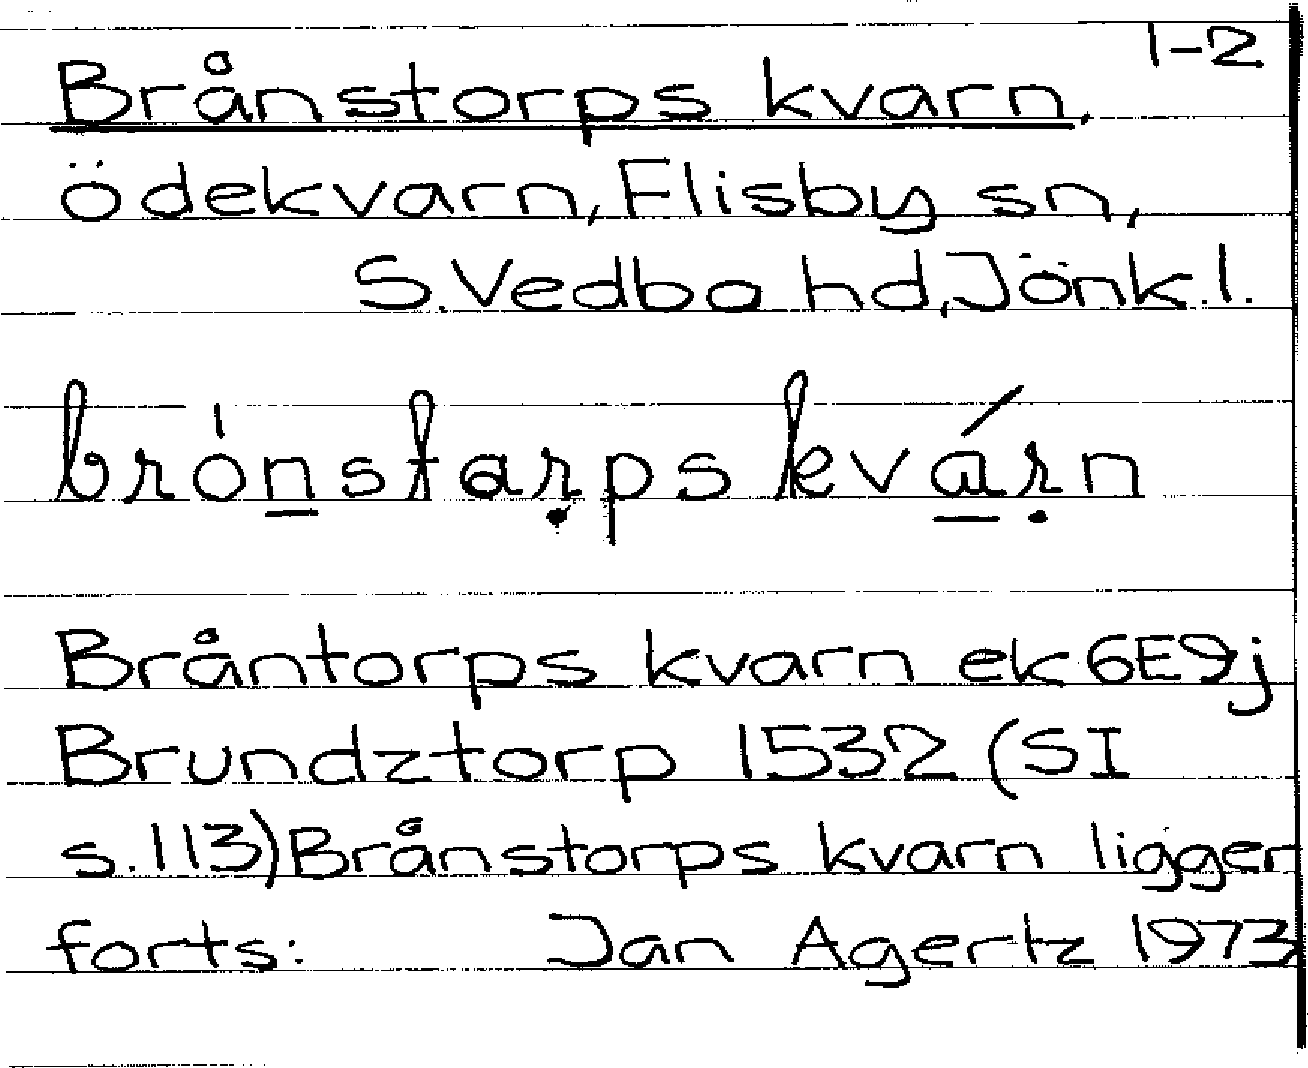 1-2
Brånstorps kvarn.
ödekvarn, Flisby sn,
S.Vedbo hd, Jönk.l.
brȯn̲starp̣s kvá̲ṛn
Bråntorps kvarn ek 6E9j
Brundztorp 1532 (SI
s.113) Brånstorps kvarn ligger
forts: Jan Agertz 1973